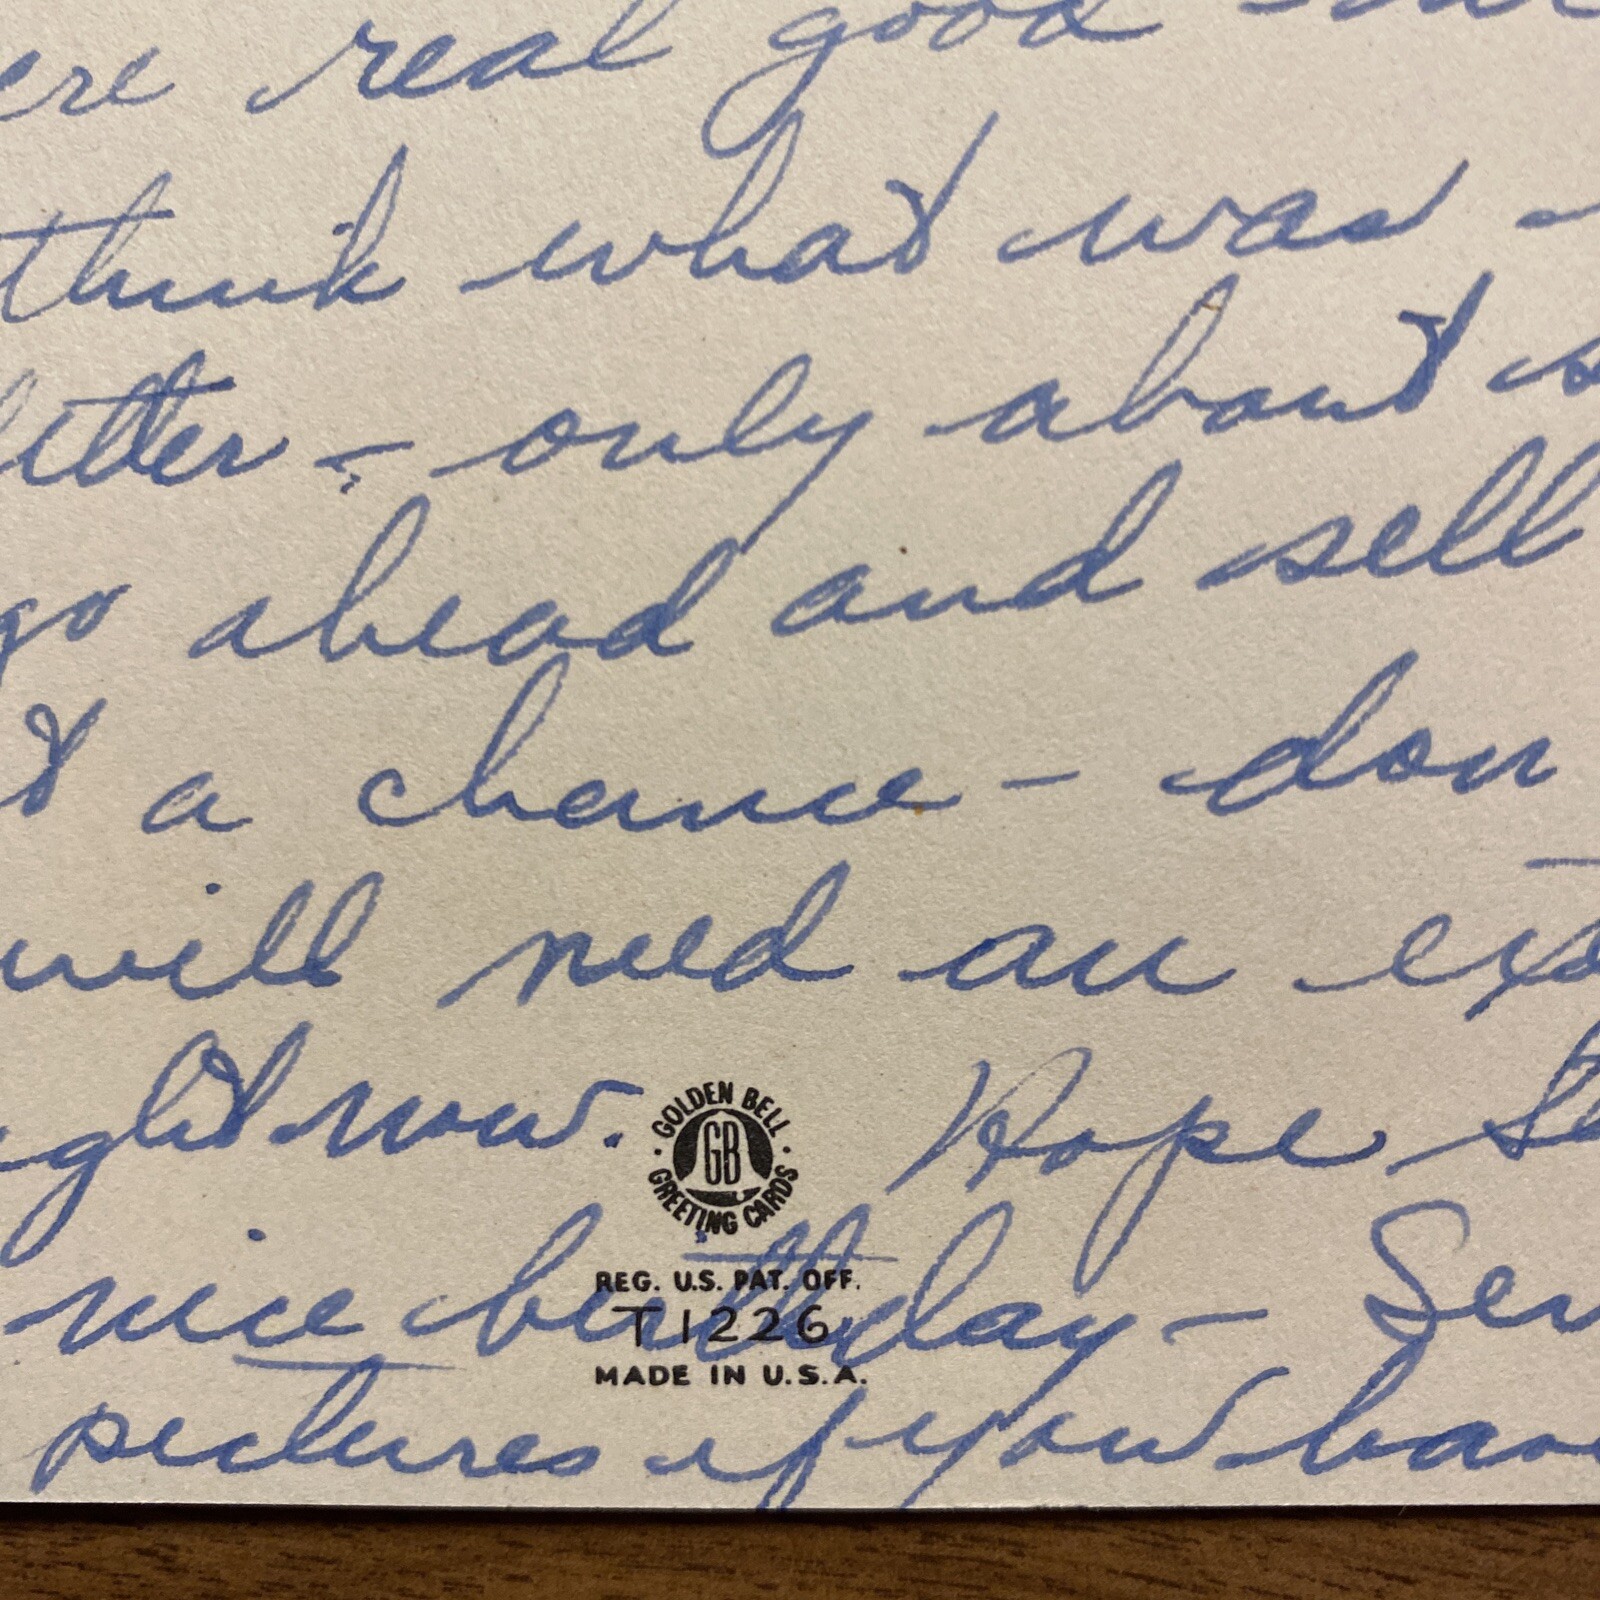 ere real good -
think what was -
letter - only about s
go ahead and sell
t a chance - don
will need an ext
ght now. Hope St
GOLDEN BELL
GB
GREETING CARDS
nice birthday - Sen
REG. U.S. PAT. OFF.
T1226
MADE IN U.S.A.
pictures if you have